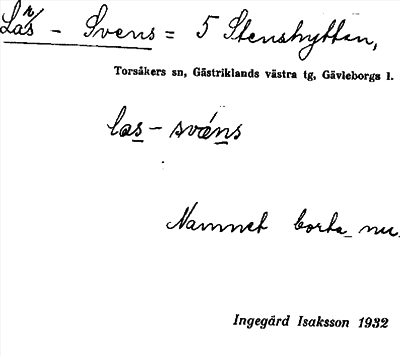 La r/s - Svens = 5 Stenshyttan,
Torsåkers sn, Gästriklands västra tg, Gävleborgs l.
las - sväns
Namnet borta nu.
Ingegärd Isaksson 1932